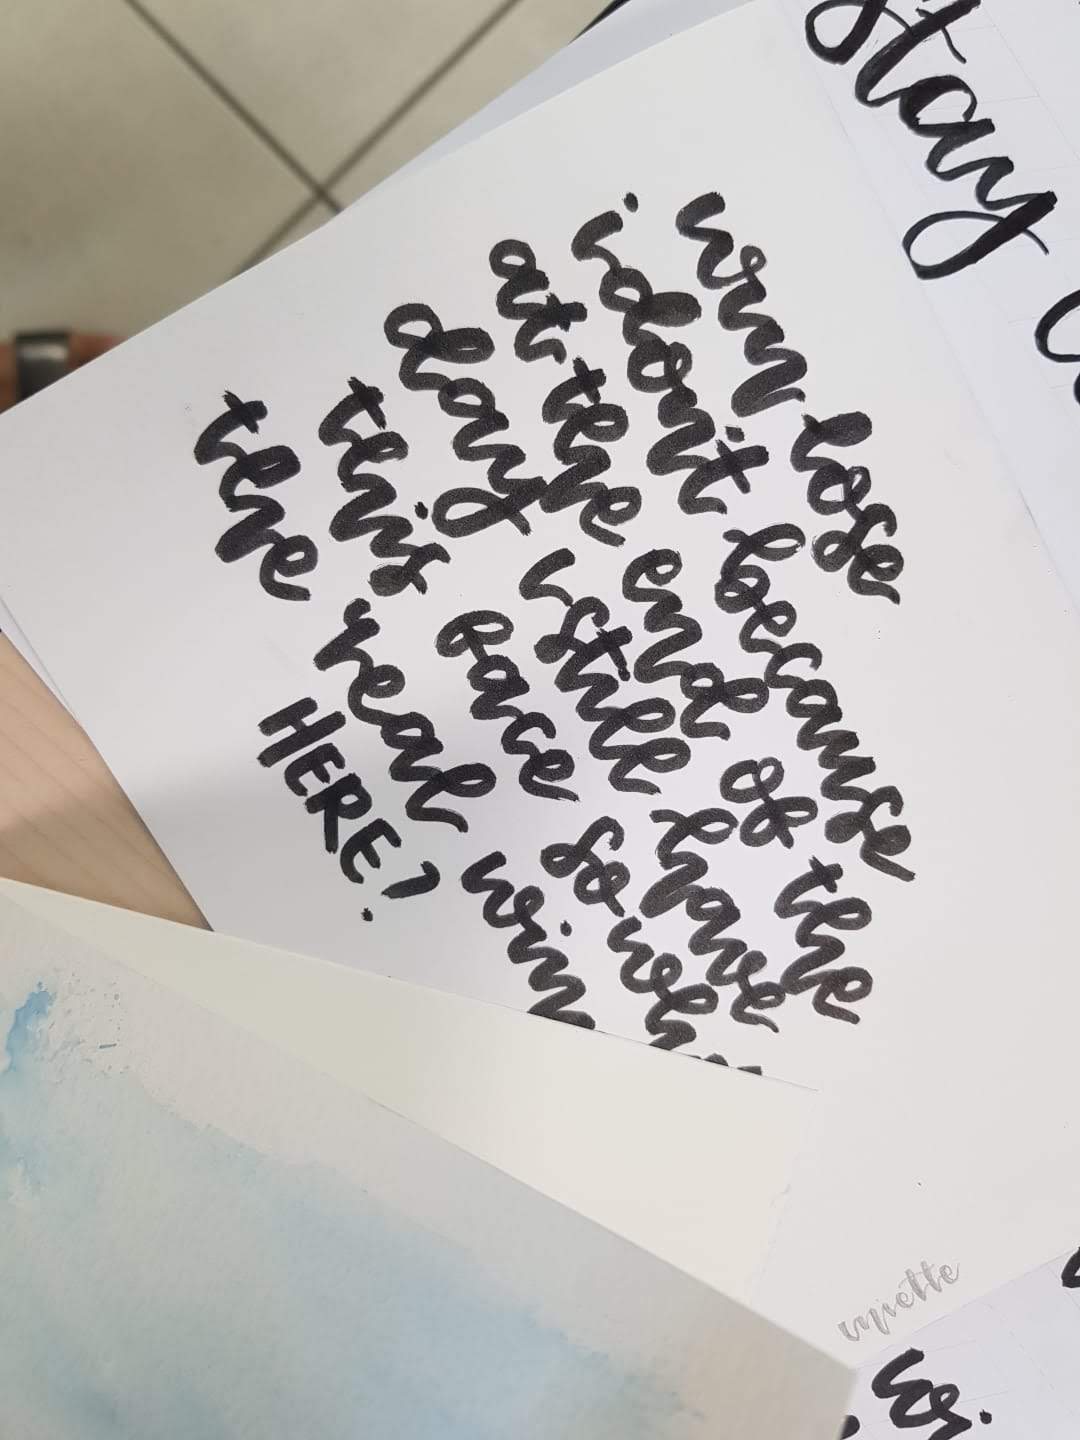 stay
win lose
i don't because
at the end of the
day i still have
this face so
the real win
HERE?
miette